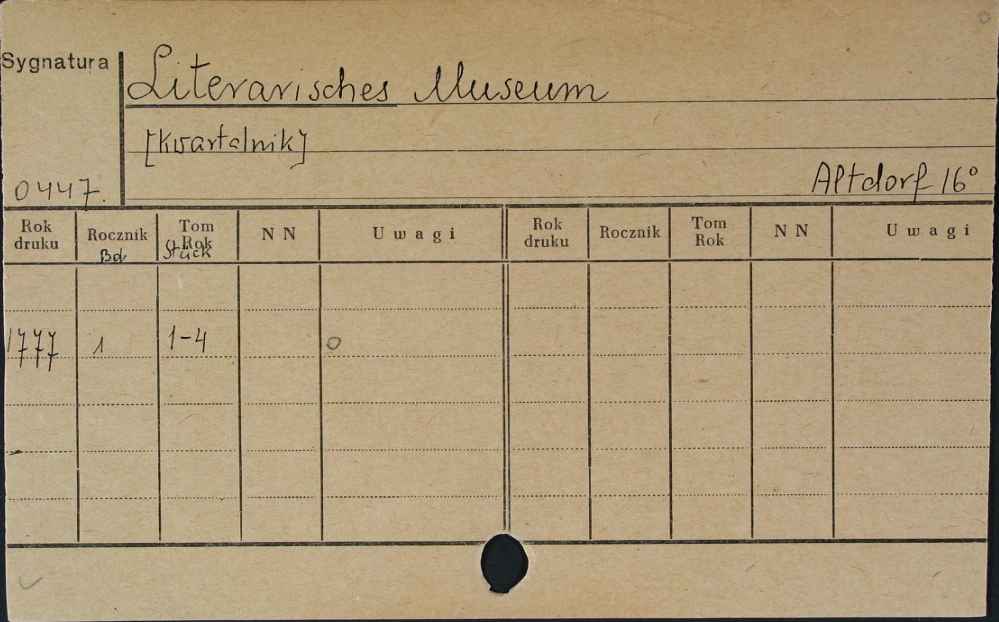 Sygnatura
Literarisches Museum
[Kwartalnik]
0447.
Altdorf 16°
Rok druku Rocznik Bd Tom Rok Stück N N Uwagi Rok druku Rocznik Tom Rok N N Uwagi
1777 1 1-4 o